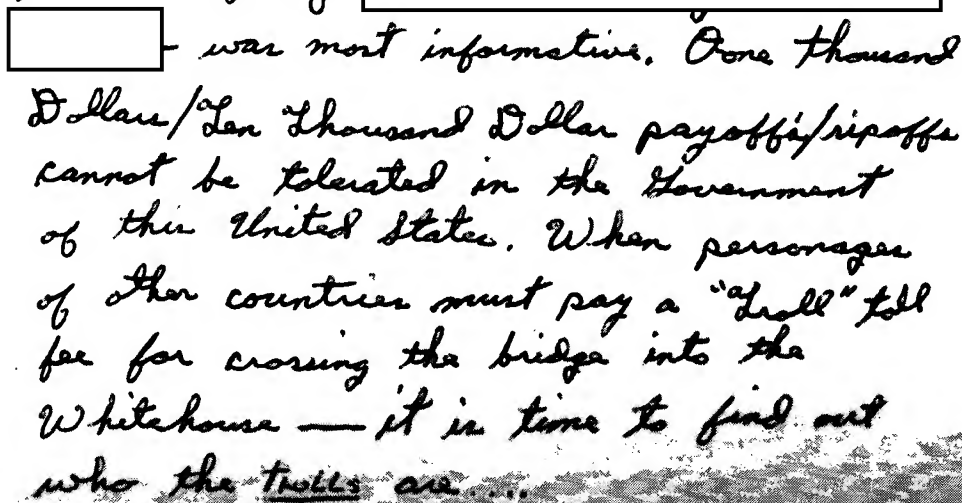 - was most informative. Oone thousand
Dollars/Ten Thousand Dollar payoffs/ripoffs
cannot be tolerated in the Government
of this United States. When personages
of other countries must pay a "Troll" toll
fee for crossing the bridge into the
Whitehouse — it is time to find out
who the trolls are ....